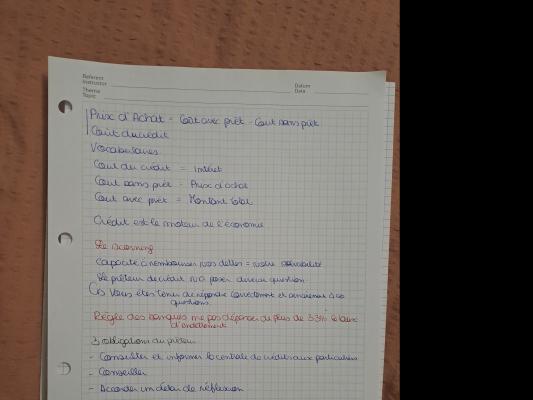 Referent
Instructor
Datum
Date
Thema
Topic
Prix d'Achat = Coût avec prêt - Cout sans prêt
Coût du crédit
Vocabulaires
Cout du crédit = interet
Cout sans prêt = Prix d'achat
Cout avec prêt = Montant total
Crédit est le moteur de l'économie
Le scorning
Capacité à rembourser nos dettes = notre solvabilité
Le prêteur de crédit va poser diverses question
Vous êtes tenu de répondre correctement et
questions
Règle des banques ne pas dépasser de plus de 33% le taux
d'endettement
3 obligations du prêteur
- Consulter et informer la centrale de crédit aux particuliers
- Conseiller
- Accorder un délai de réflexion